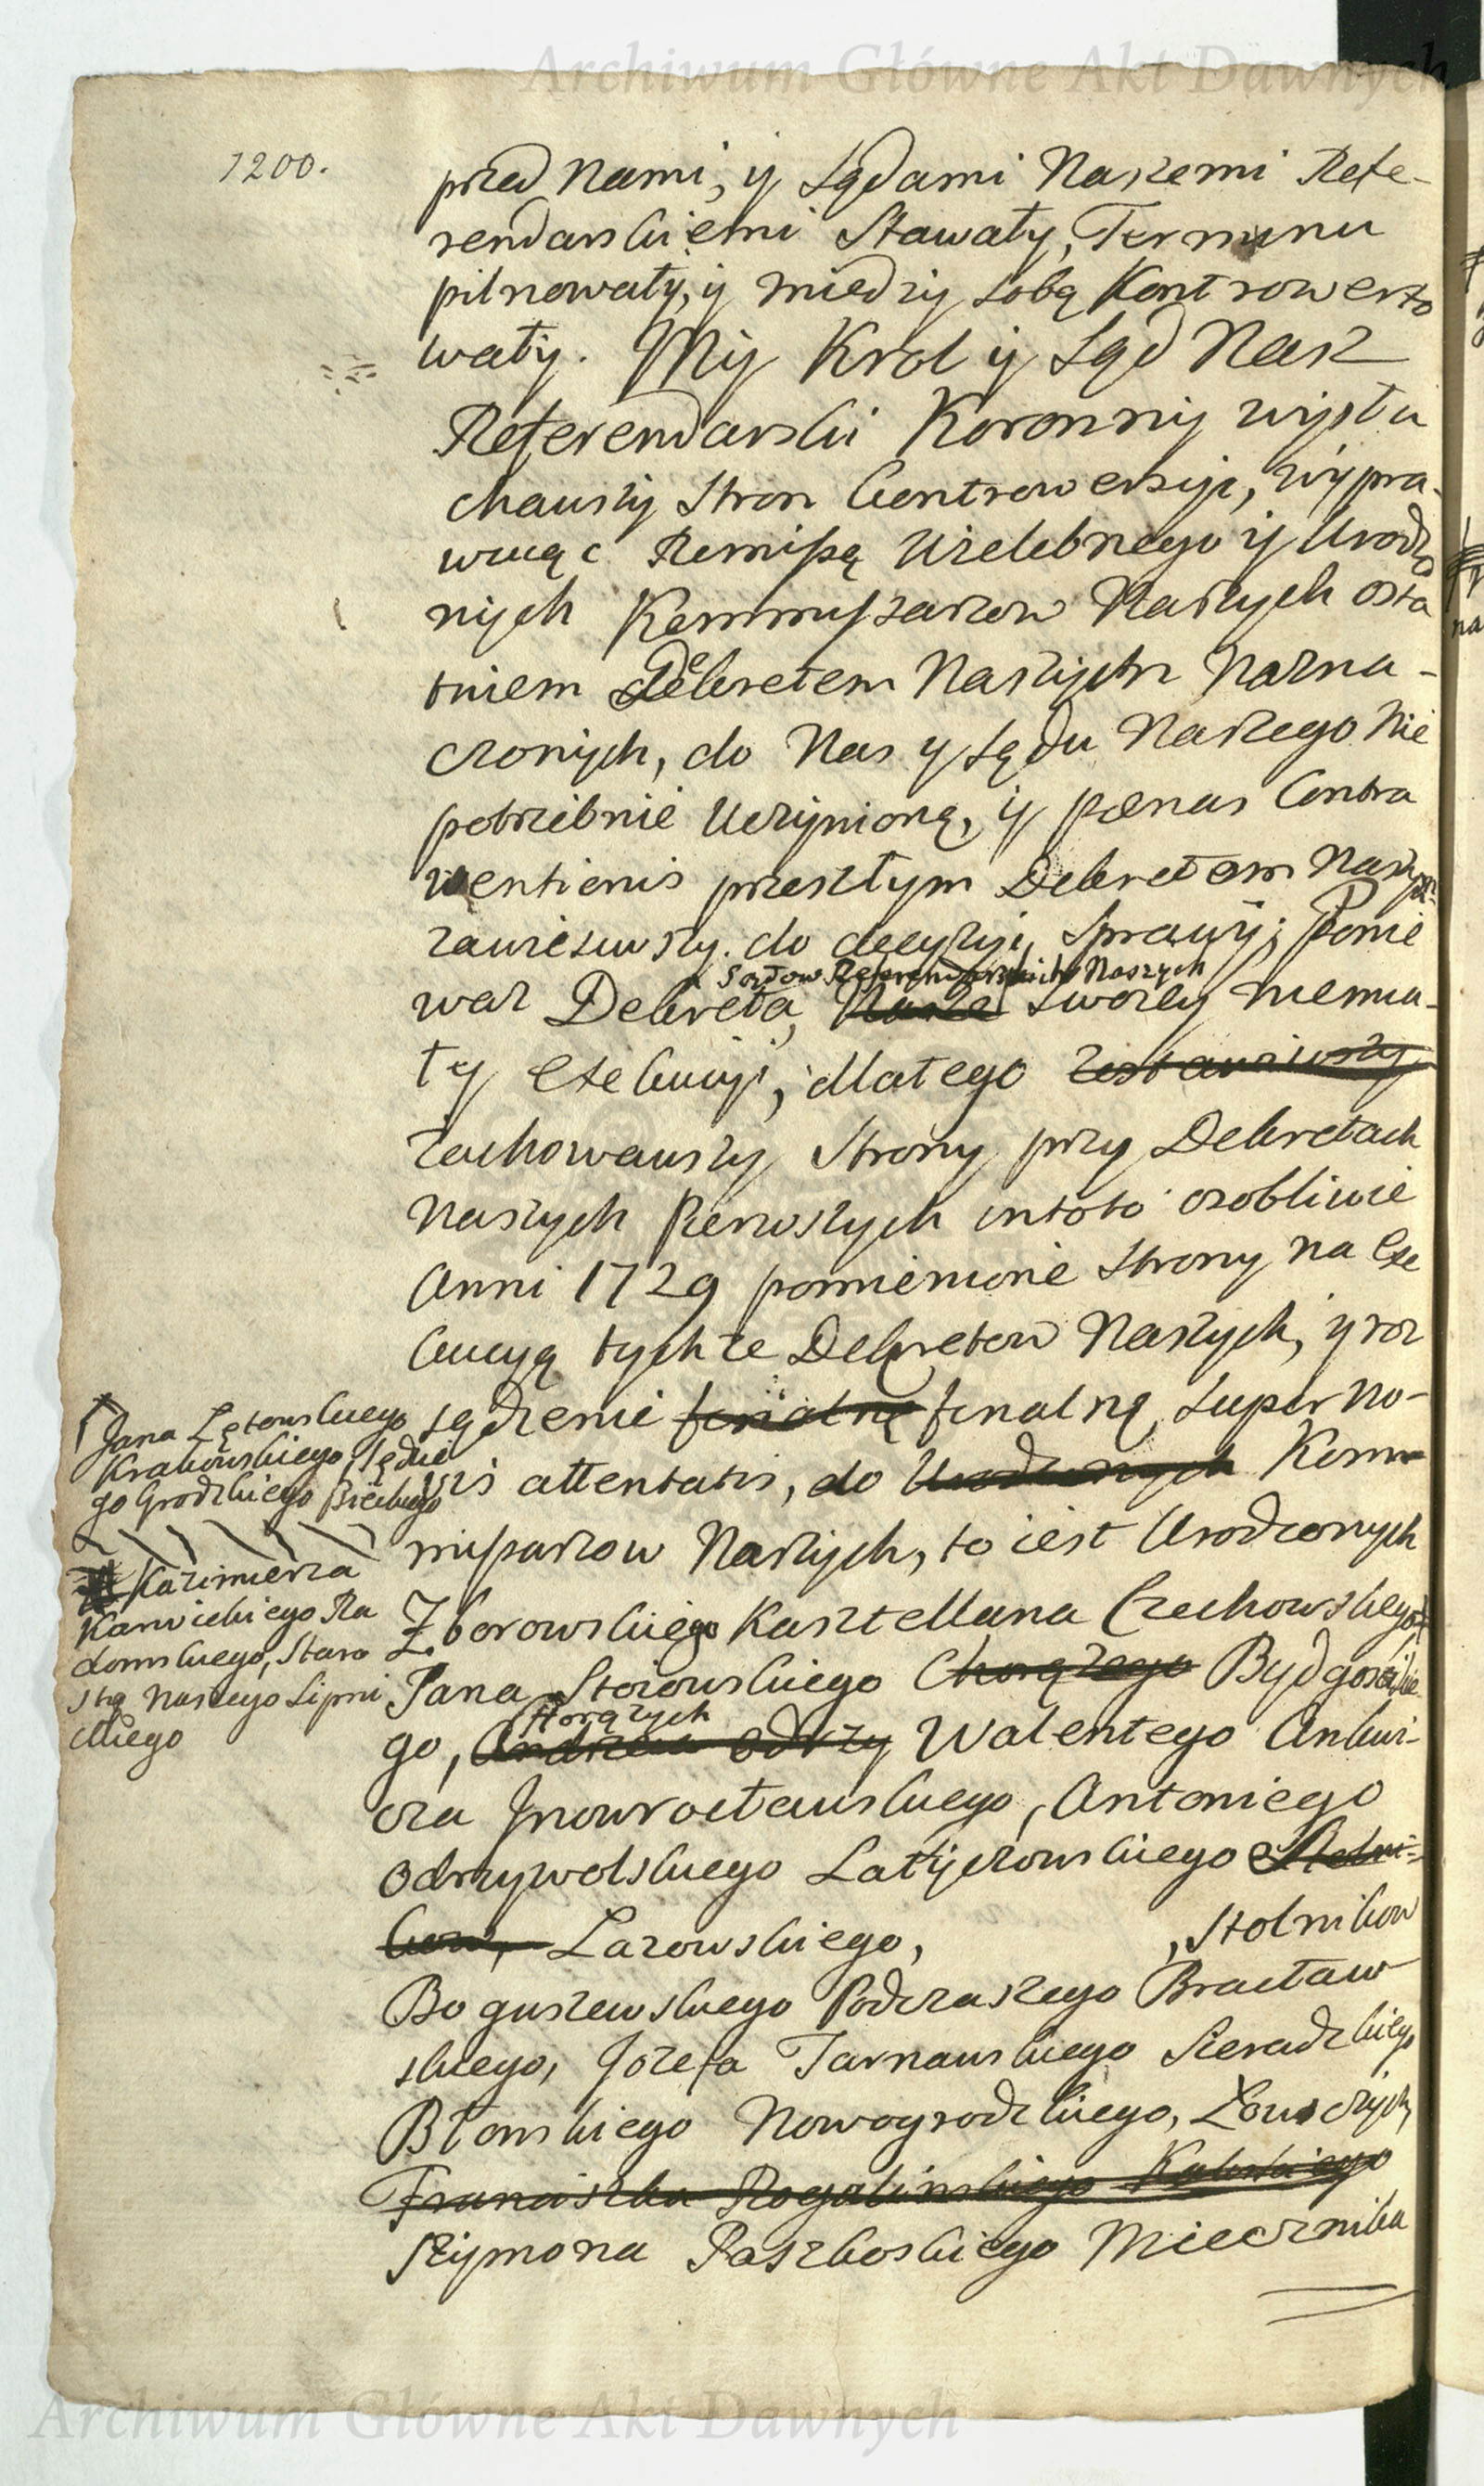 Archiwum Główne Akt Dawnych
1200.
przed Nami, y Sądami Naszemi Refe-
rendarskiemi Stawały, Terminu
pilnowały, y między sobą Kontrowerto
wały. My Krol y Sąd Nasz
Referendarski Koronny wysłu
chawszy Stron Controwersyi, wypra-
wuiąc Remissą Wielebnego y Urodzo
nych Kommissarzow Naszych osta
tniem Dekretem Naszych Nazna-
czonych, do Nas y Sądu Naszego Nie
potrzebnie Uczynioną, y pœnas Contra
wentionis przeszłym Dekretem Naszym
zawiesiwszy do decyzyi Sprawy; Ponie
Sądow Referendarskich Naszych
waz Dekreta, Nasze Swoiey niemia-
ły Exekucyi, dlatego Zostawiwszy
Zachowawszy Strony przy Dekretach
Naszych Pierwszych intoto osobliwie
Anni 1729 pomienione Strony na Exe
kucyą tychze Dekretow Naszych, y roz
sądzenie finalne finalną super No-
wis attentatis, do Urodzonych Kom-
missarzow Naszych, to iest Urodzonych
Zborowskiego Kasztellana Czechowskiego
Jana Stoiowskiego Chorążego Bydgoskie
Horązych
go, Walentego Ankwi-
cza Jnowrocławskiego, Antoniego
Odrzywolskiego Latyczowskiego Stolni-
kow, Lazowskiego, , Stolnikow
Boguszewskiego Podczaszego Bracław
skiego, Jozefa Tarnawskiego Sieradzkiego
Błonskiego Nowogrodzkiego, Łowczych
Franciszka Rogalinskiego
Szymona Paszkoskiego Miecznika
Jana Lętowskiego
Krakowskiego, Sędzie
go Grodzkiego Bieckiego
Kazimierza
Karwickiego Ra
domskiego, Staro
stę Naszego Lipni
ckiego
na
Archiwum Główne Akt Dawnych